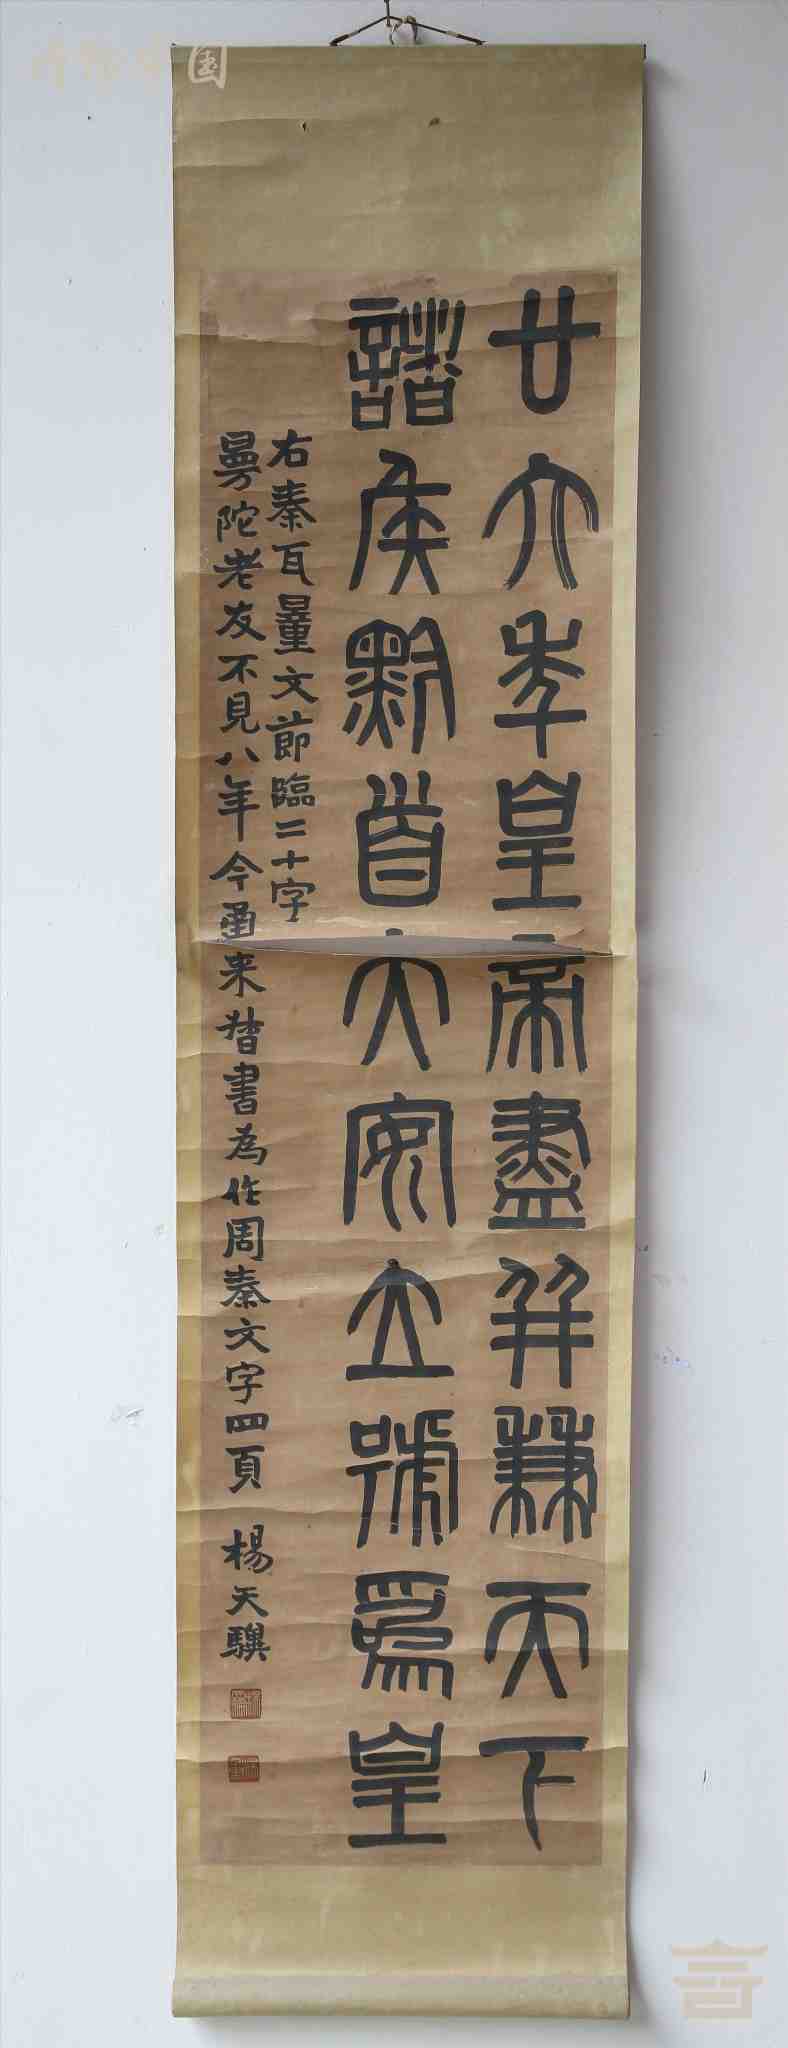 廿六年皇帝盡并兼天下
諸侯黔首大安立號為皇
右秦瓦量文節臨二十字
曼陀老友不見八年今來書為作周秦文字四頁 楊天驥